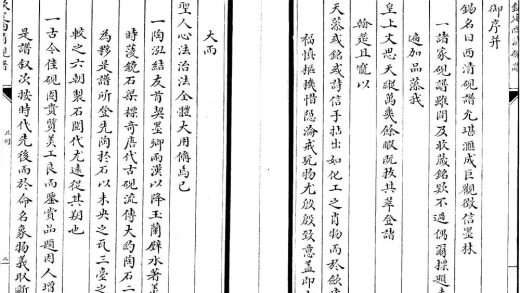 御序并
錫名曰西清硯譜允堪滙成巨觀徵信墨林
一諸家硯譜雖間及收藏銘款不過偶爾標題
遍加品藻我
皇上文思天縱萬幾餘暇既拔其萃登諸
翰筵且寵以
天藻或銘或詩信手拈出如化工之肖物而於
福慎樞機惜隱淪戒玩物尤殷殷致意蓋即
大而
聖人心法治法全體大用備焉已
一陶泓結友首契墨卿兩漢以降玉蘭辟水著
時薄鏡石渠標奇唐代古硯流傳大約陶石二
為夥是譜所登先陶於石以未央之瓦三臺之
較之六朝製石閱代尤遠從其朔也
一古今佳硯固貴質美工良而鑒賞品題因人增
是譜叙次按時代先後而於命名象物義取斷
凡例